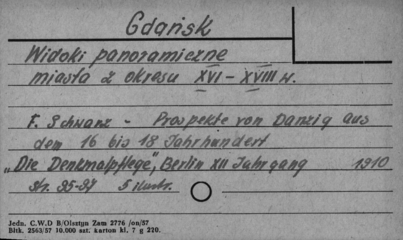 Gdańsk
Widoki panoramiczne
miasta z okresu XVI - XVIII w.
F. Schwarz - Prospekte von Danzig aus
dem 16 bis 18 Jahrhundert
„Die Denkmalpflege", Berlin XII Jahrgang 1910
str. 95-97 5 ilustr.
Jedn. C.W.D B/Olsztyn Zam 2776 /on/57
Bitk. 2563/57 10.000 szt. karton kl. 7 g 220.